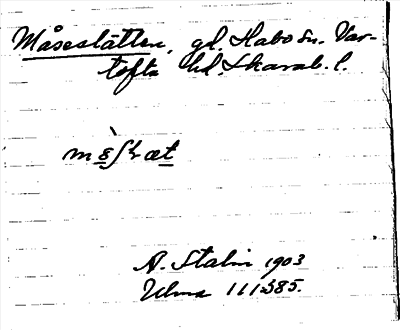 Måsestätten, gl. Habo sn. Var-
tofta hd. Skarab. l.
A. Stalin 1903
Ulma 111385.